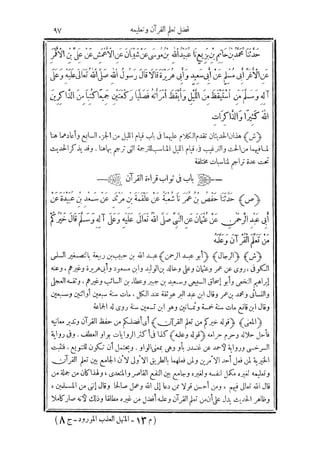 فضل تعلم القرآن وتعليمه ٩٧
حدثنا محمد بن حاتم بن بزيع نا عبيد الله بن موسى عن شيبان عن الأعمش عن على بن الأقمر
عن الأغر أبى مسلم عن أبى سعيد وأبى هريرة قالا قال رسول الله صلى الله تعالى عليه وعلى
آله وسلم من استيقظ من الليل وأيقظ امرأته فصليا ركعتين جميعا كتبا من الذاكرين
الله كثيرا والذاكرات
﴿ش﴾ هذان الحديثان تقدم الكلام عليهما فى باب قيام الليل من الجزء السابع وأعادهما هنا
لما فيهما من الحث والترغيب فى قيام الليل المناسب للترجمة التى ترجم بها هنا. وقد يذكر الحديث
تحت عدة تراجم لمناسبات مختلفة
باب فى ثواب قراءة القرآن
﴿ص﴾ حدثنا حفص بن عمر نا شعبة عن علقمة بن مرثد عن سعد بن عبيدة عن
أبى عبد الرحمن عن عثمان عن النبى صلى الله تعالى عليه وعلى آله وسلم قال خيركم
من تعلم القرآن وعلمه
﴿ش﴾ ﴿الرجال﴾ ﴿أبو عبد الرحمن﴾ عبد الله بن حبيب بن ربيعة بالتصغير السلمى
الكوفى. روى عن عمر وعثمان وعلى وخالد بن الوليد وابن مسعود وأبى هريرة وغيرهم. وعنه
إبراهيم النخعى وأبو إسحاق السبيعى وسعيد بن جبير وعطاء بن السائب وغيرهم. وثقه العجلى
والنسائى ومحمد بن عمر وقال ابن عبد البر هو ثقة عند الكل. مات سنة سبعين أو اثنتين وسبعين
وقال ابن قانع مات سنة خمسة وثمانين وهو ابن تسعين سنة روى له الجماعة
﴿المعنى﴾ ﴿قوله خيركم من تعلم القرآن﴾ أى أفضلكم من حفظ القرآن وتدبر معانيه
فأحل حلاله وحرم حرامه ﴿قوله وعلمه﴾ كذا فى أكثر الروايات بواو العطف. وفى رواية
السرخسى ورواية لأحمد عن غندر بأو وهى بمعنى الواو. ويحتمل أن تكون للتنويع. فتثبت
الخيرية لمن فعل أحد الأمرين ولمن فعلهما بالطريق الأولى لأن الجامع بين تعلم القرآن
وتعليمه لغيره مكمل لنفسه ولغيره وجامع بين النفع القاصر والمتعدى. ولهذا كان من جملة من
قال الله تعالى فيهم. ومن أحسن قولا ممن دعا إلى الله وعمل صالحا وقال إننى من المسلمين.
وظاهر الحديث يدل على أن من تعلم القرآن وعلمه أفضل من غيره مطلقا وذلك لأنه صار كاملا
(م ١٣ - المنهل العذب المورود - ج ٨)